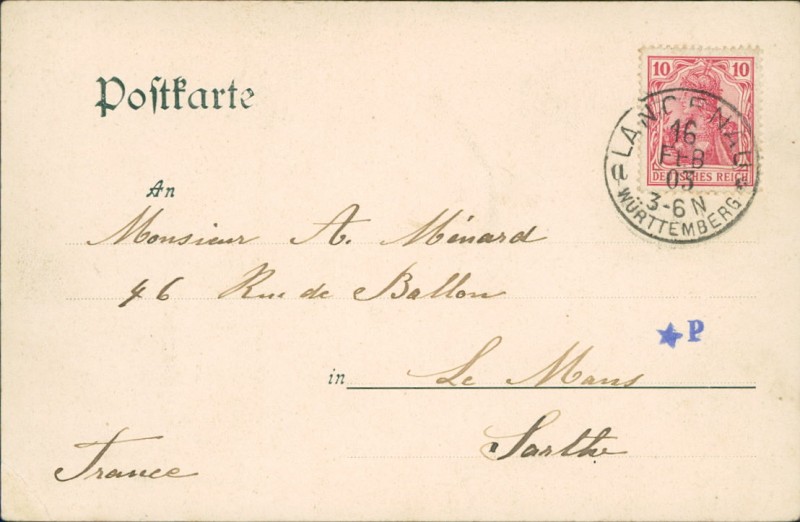 Postkarte
10 10
DEUTSCHES REICH
LANGENAU
16
FEB
03
3-6 N
WÜRTTEMBERG
An
Monsieur A. Ménard
46 Rue de Ballon
P
in Le Mans
Sarthe
France